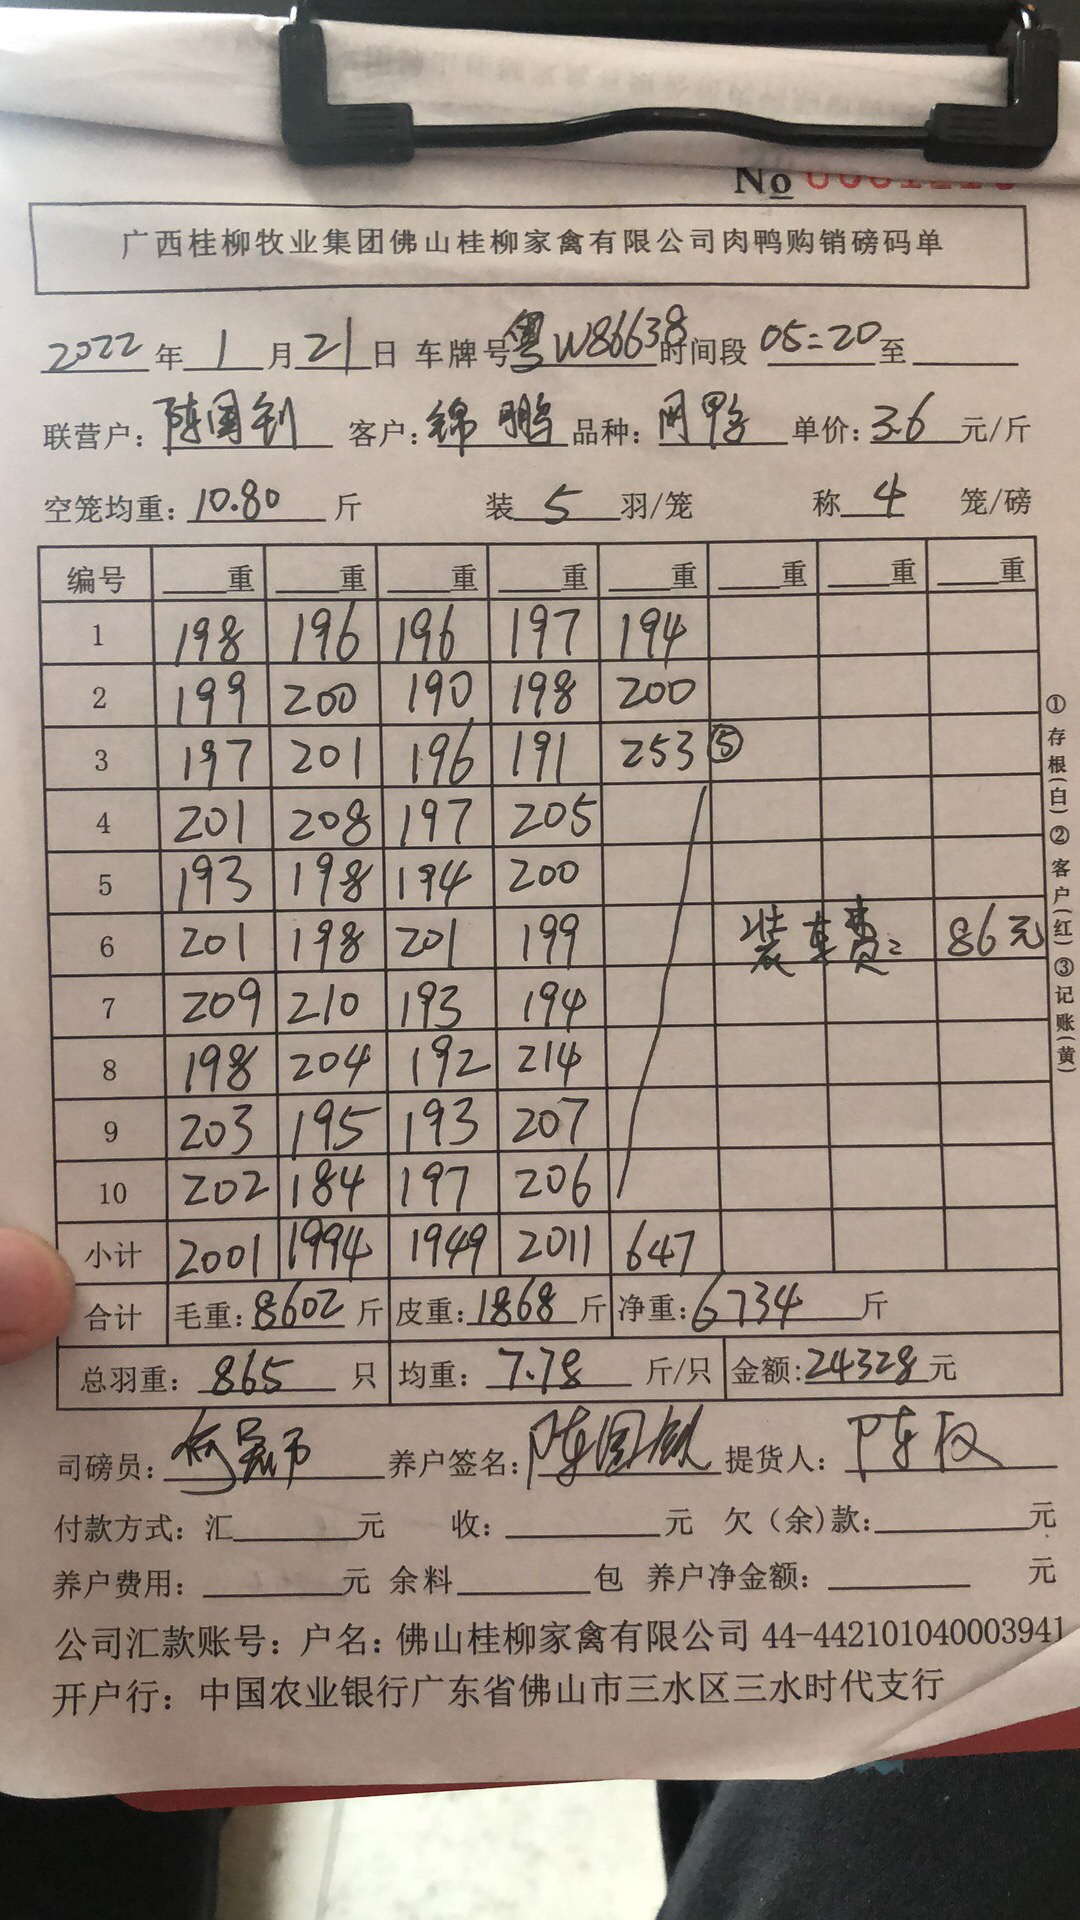 No
广西桂柳牧业集团佛山桂柳家禽有限公司肉鸭购销磅码单
2022年1月21日 车牌号粤W86638时间段05:20至
联营户：陈国钊 客户：锦鹏 品种： 单价：3.6元/斤
空笼均重：10.80斤 装5羽/笼 称4笼/磅
编号 重 重 重 重 重 重 重 重
1 198 196 196 197 194
2 199 200 190 198 200
3 197 201 196 191 253 ⑤
4 201 208 197 205
5 193 198 194 200
6 201 198 201 199 装车费: 86元
7 209 210 193 194
8 198 204 192 214
9 203 195 193 207
10 202 184 197 206
小计 2001 1994 1949 2011 647
合计 毛重：8602斤 皮重：1868斤 净重：6734斤
总羽重：865只 均重：7.78斤/只 金额:24328元
司磅员： 养户签名： 提货人：
付款方式：汇 元 收： 元 欠（余)款： 元
养户费用： 元 余料 包 养户净金额： 元
公司汇款账号：户名：佛山桂柳家禽有限公司 44-442101040003941
开户行：中国农业银行广东省佛山市三水区三水时代支行
①存根(白)②客户(红)③记账(黄)